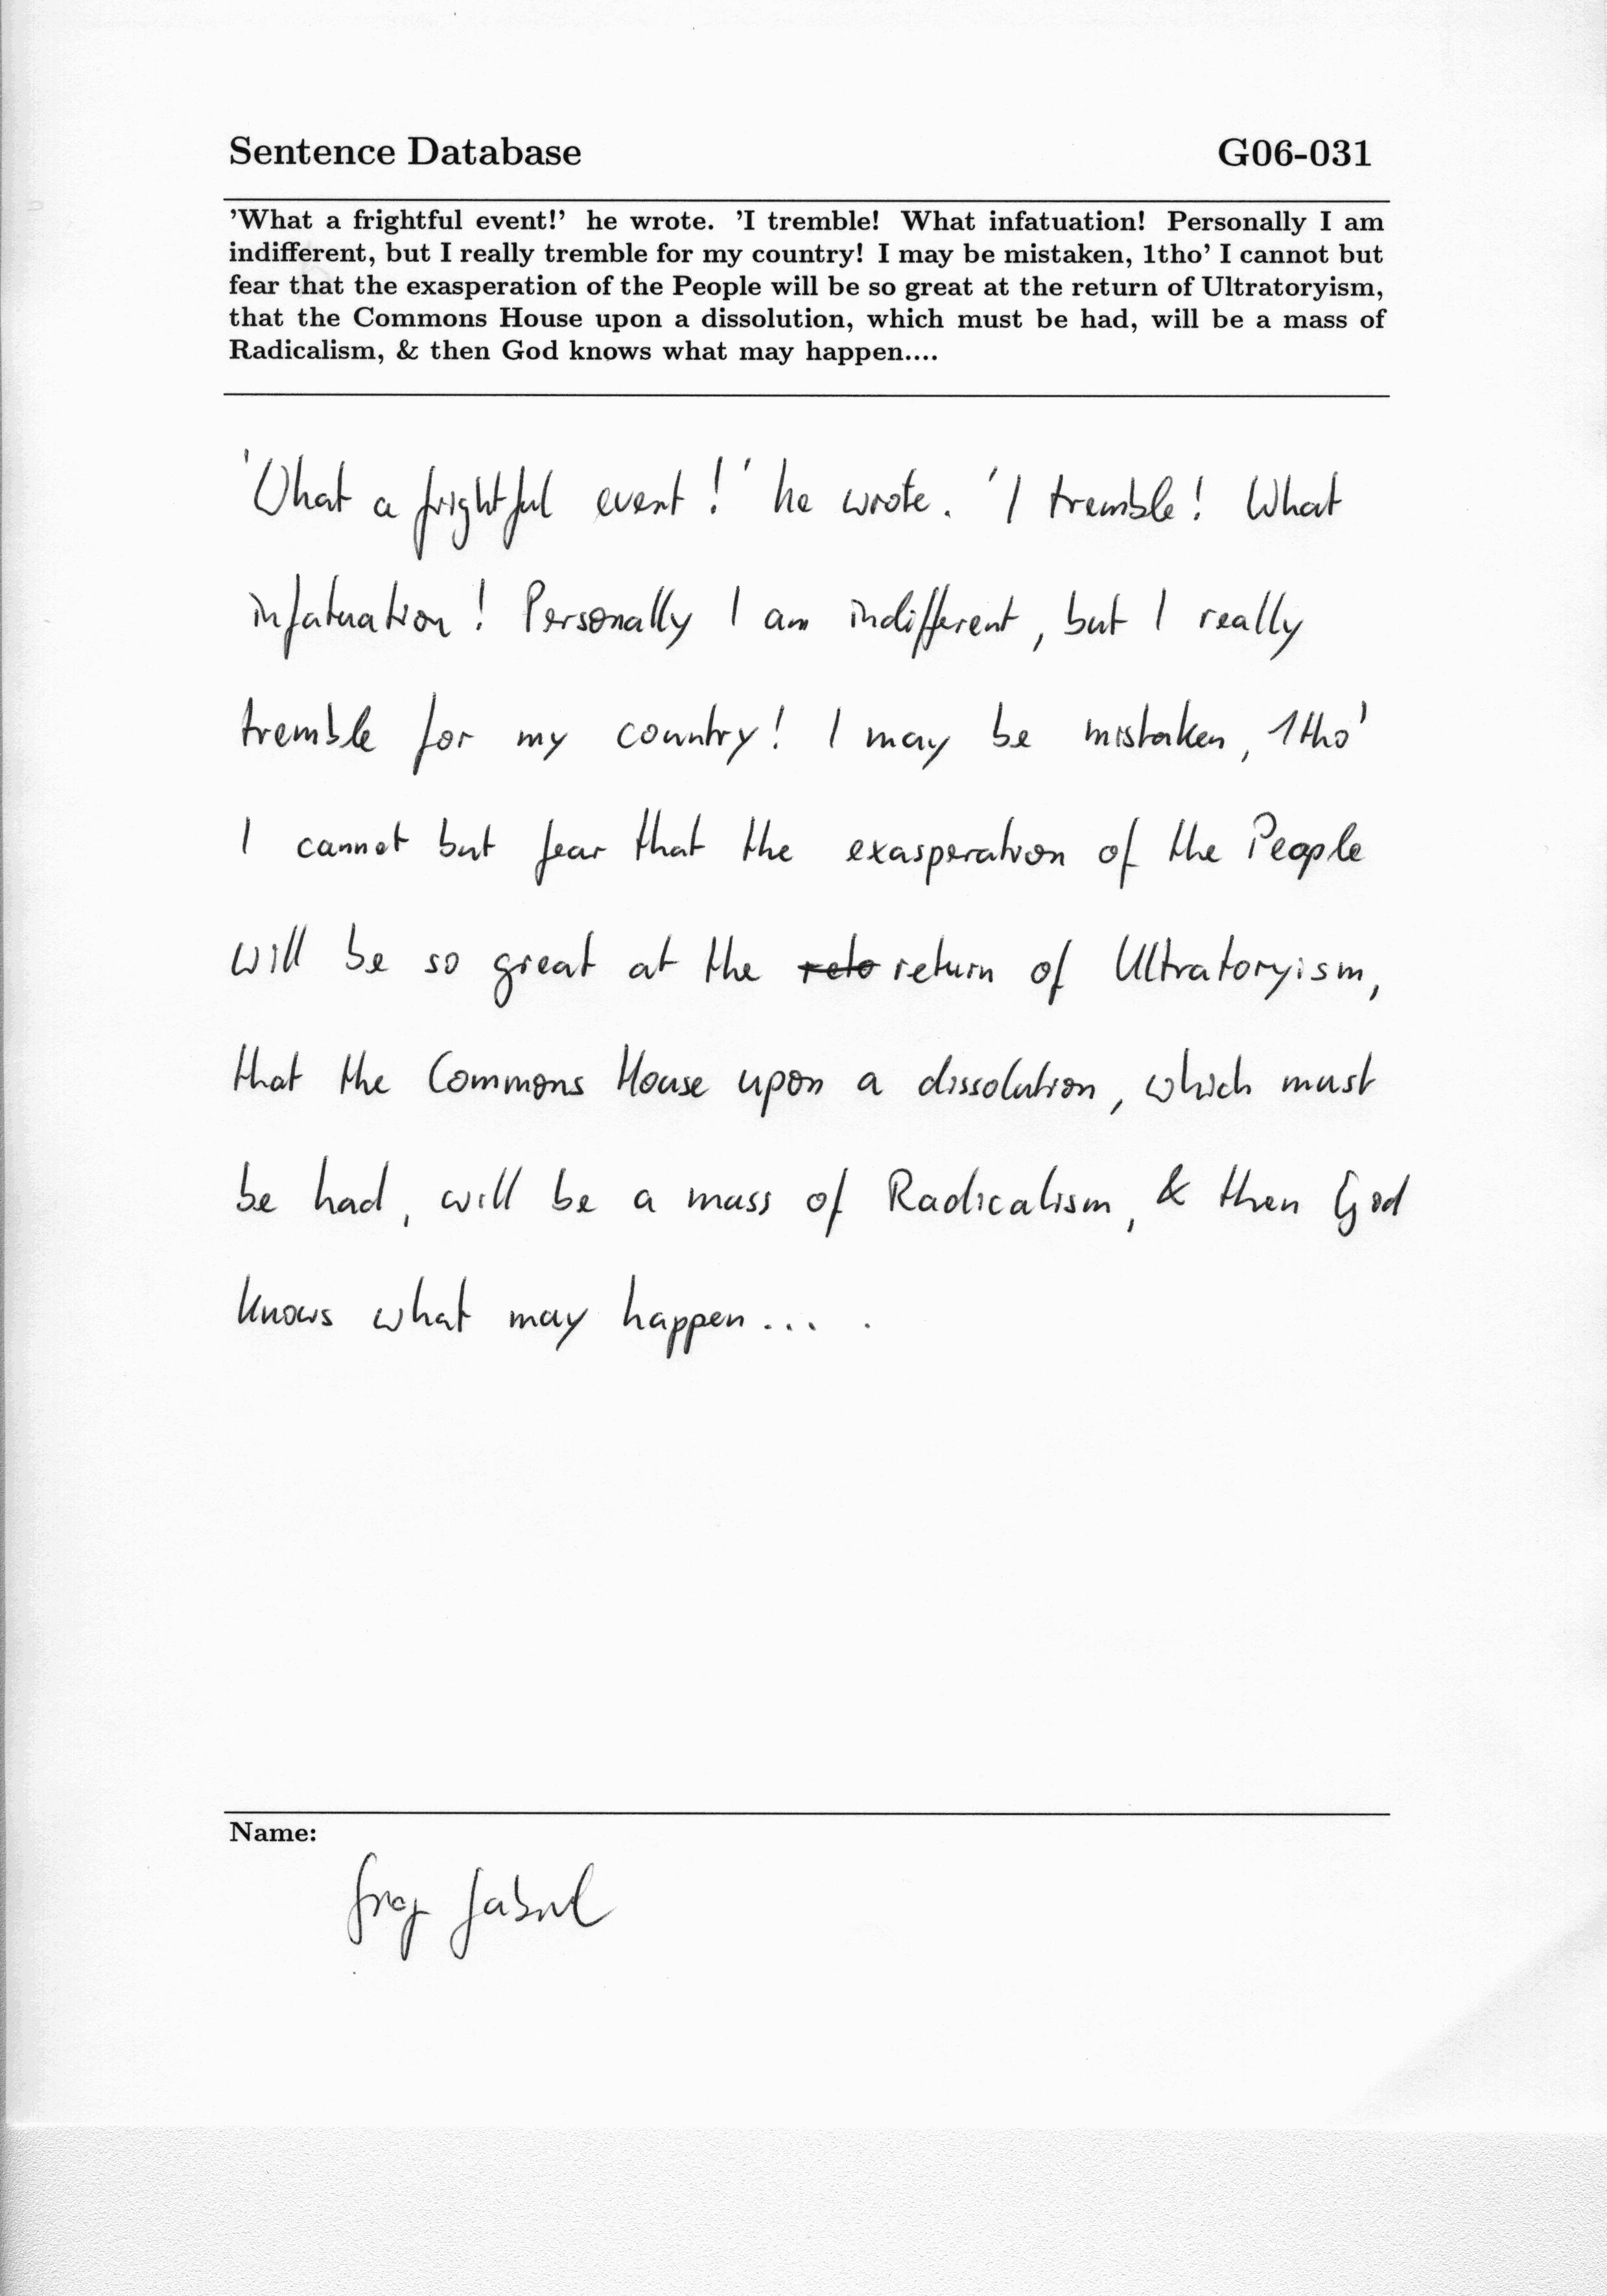 Sentence Database G06-031
'What a frightful event!' he wrote. 'I tremble! What infatuation! Personally I am
indifferent, but I really tremble for my country! I may be mistaken, 1tho' I cannot but
fear that the exasperation of the People will be so great at the return of Ultratoryism,
that the Commons House upon a dissolution, which must be had, will be a mass of
Radicalism, & then God knows what may happen....
'What a frightful event!' he wrote. 'I tremble! What
infatuation! Personally I am indifferent, but I really
tremble for my country! I may be mistaken, 1tho'
I cannot but fear that the exasperation of the People
will be so great at the reto return of Ultratoryism,
that the Commons House upon a dissolution, which must
be had, will be a mass of Radicalism, & then God
knows what may happen... .
Name: